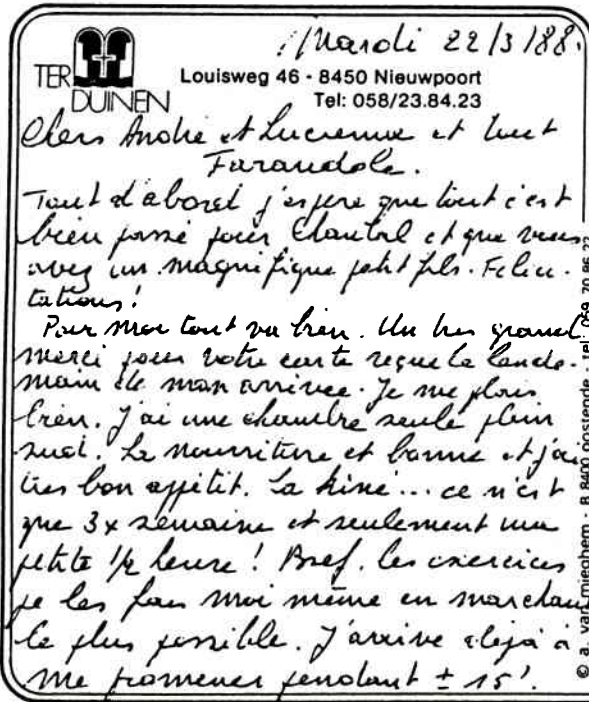 Mardi 22/3/88.
TER DUINEN
Louisweg 46 - 8450 Nieuwpoort
Tel: 058/23.84.23
Chers André et Lucienne et tout
Farandole.
Tout d'abord j'espère que tout c'est
bien passé pour Chantal et que vous
avez un magnifique petit fils. Félici-
tations!
Pour moi tout va bien. Un très grand
merci pour votre carte reçue le lende-
main de mon arrivée. Je me plais
bien. J'ai une chambre seule plein
sud. La nourriture et bonne et j'ai
très bon appétit. La kiné... ce n'est
que 3x semaine et seulement une
petite 1/2 heure! Bref. les exercices
je les fais moi même en marchan
le plus possible. J'arrive déjà à
me promener pendant ± 15'.
© a. van mieghem - B 8400 oostende - tel: 059 70 86 22